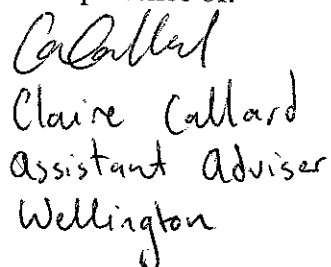 Claire Callard
Assistant Adviser
Wellington